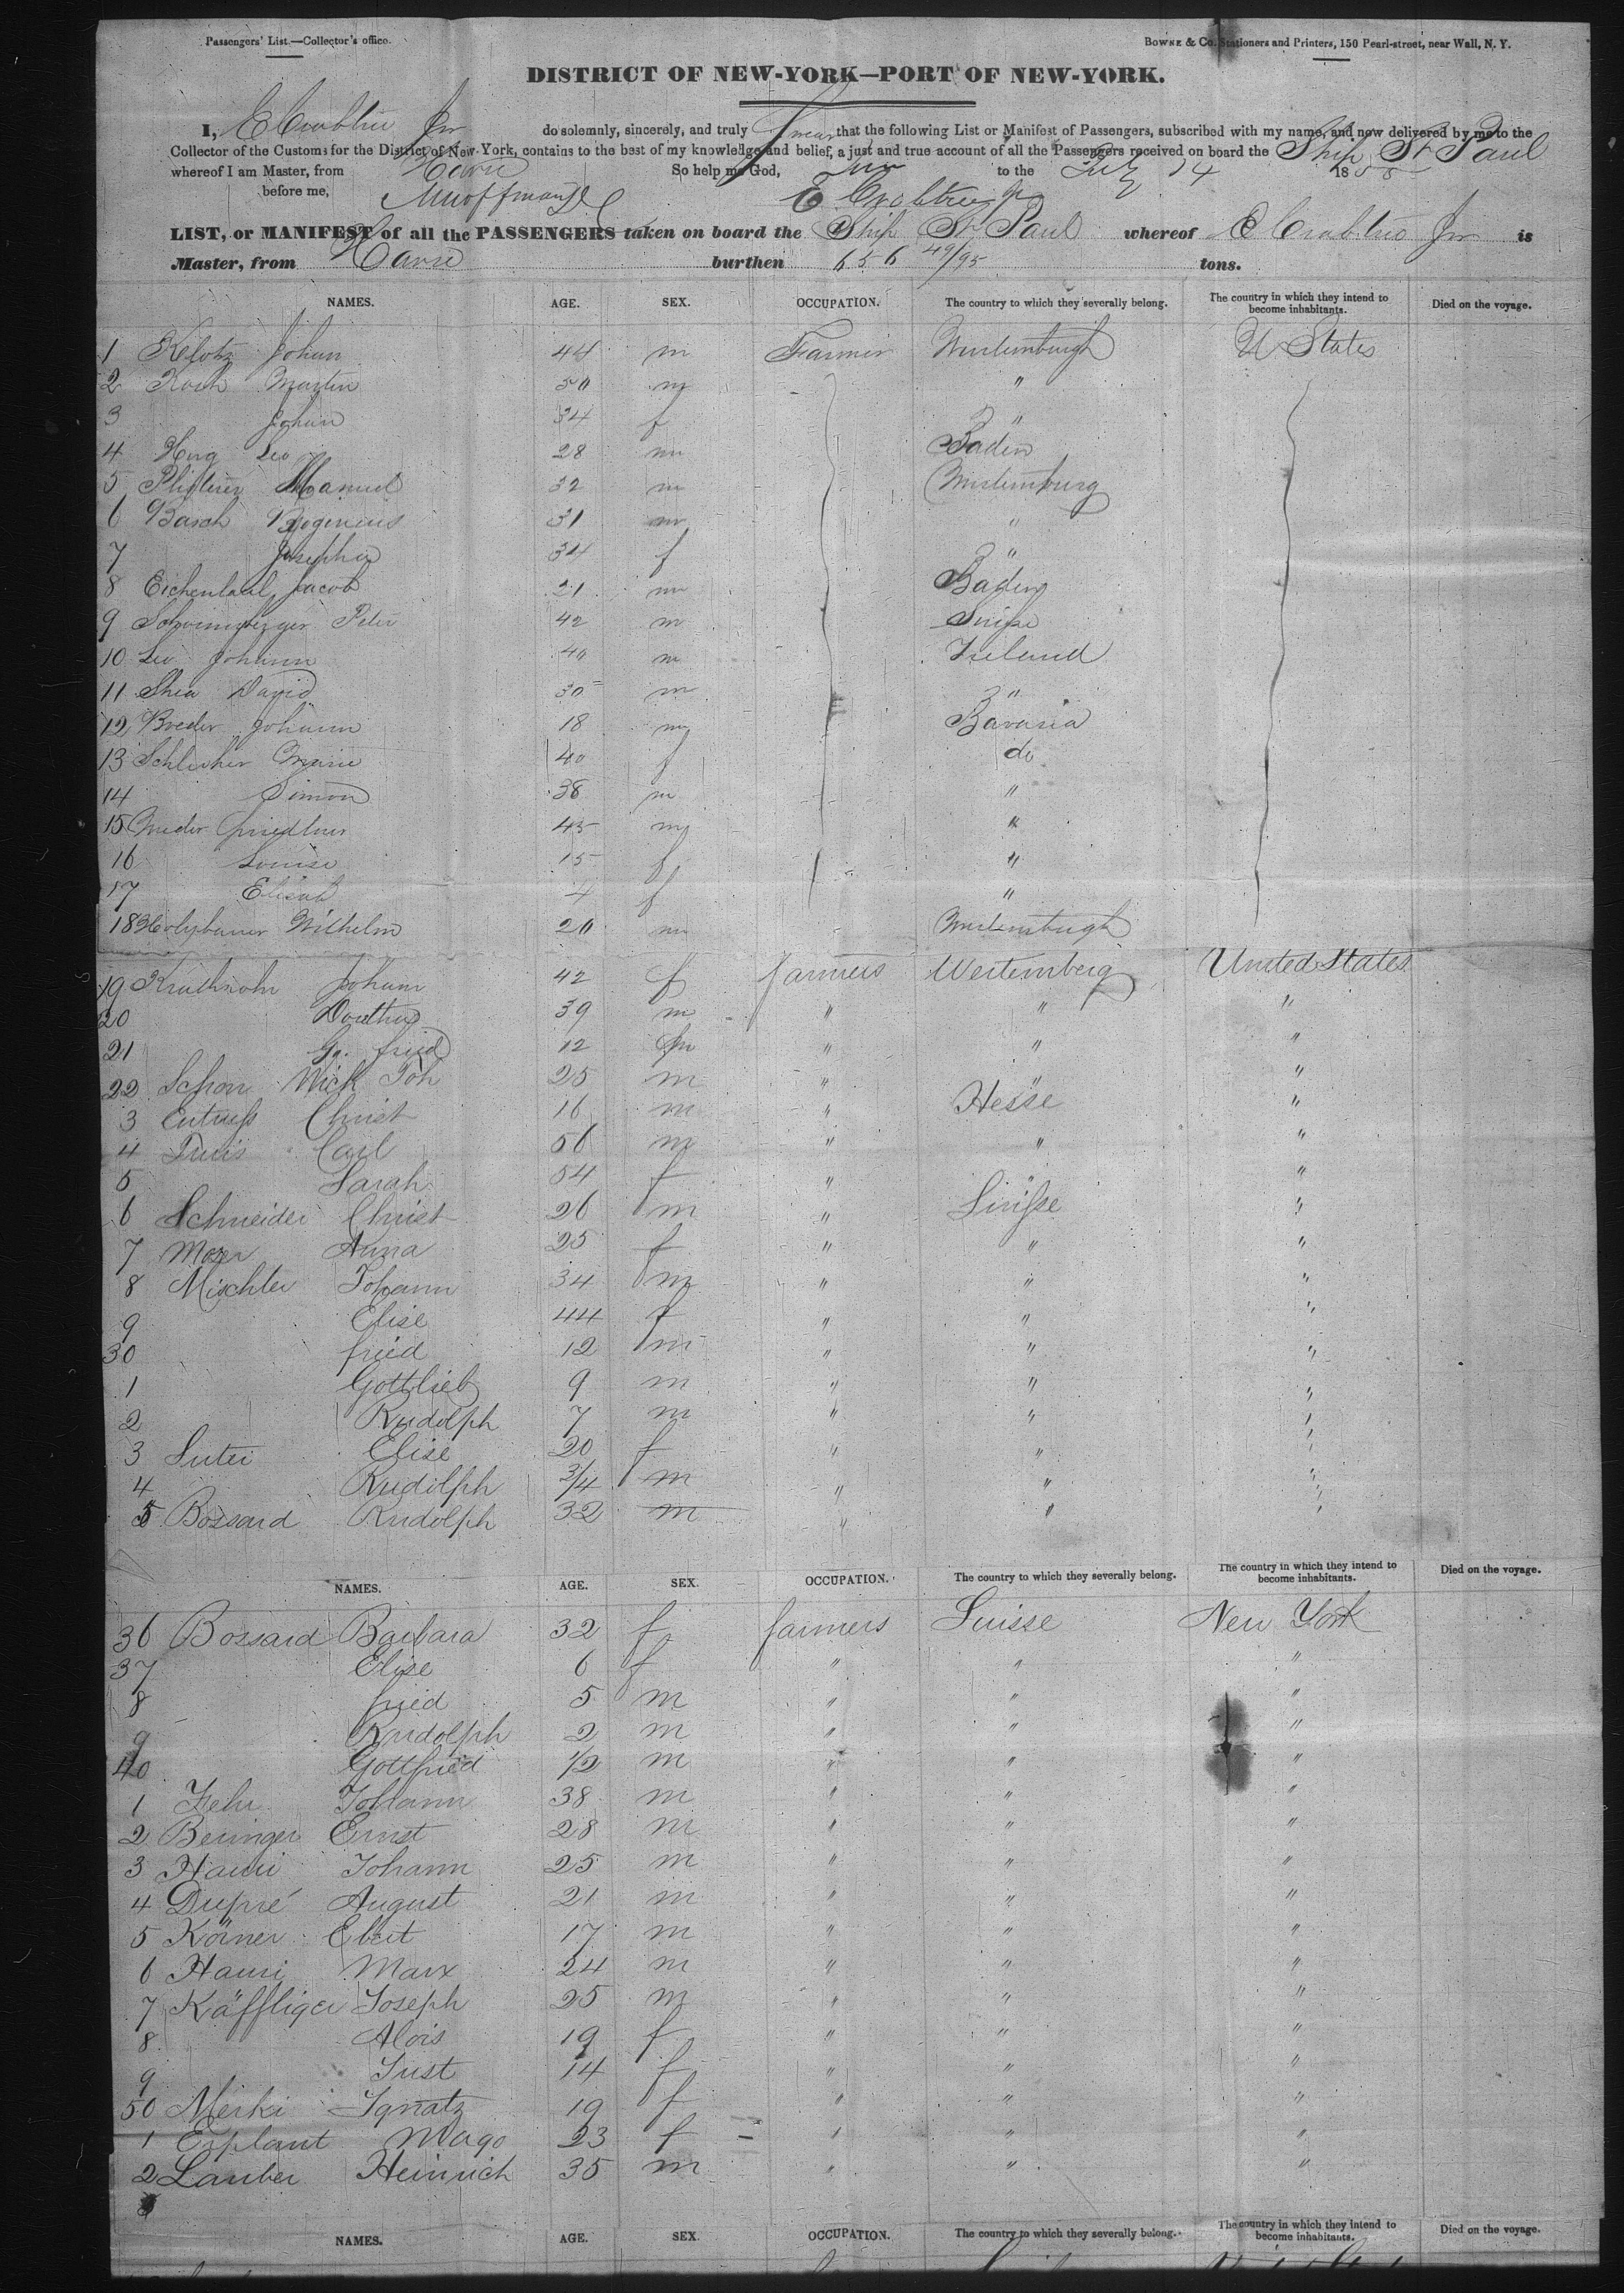 Passengers' List.—Collector's office.
BOWNE & Co. Stationers and Printers, 150 Pearl-street, near Wall, N. Y.
DISTRICT OF NEW-YORK—PORT OF NEW-YORK.
I, E Crabtree Jr do solemnly, sincerely, and truly swear that the following List or Manifest of Passengers, subscribed with my name, and now delivered by me to the
Collector of the Customs for the District of New-York, contains to the best of my knowledge and belief, a just and true account of all the Passengers received on board the Ship St Paul
whereof I am Master, from Havre So help me God, to the 14 185
before me, E Crabtree Jr
LIST, or MANIFEST of all the PASSENGERS taken on board the Ship St Paul whereof E Crabtree Jr is
Master, from Havre burthen 656 49/95 tons.
NAMES. AGE. SEX. OCCUPATION. The country to which they severally belong. The country in which they intend to become inhabitants. Died on the voyage.
1 Klotz Johan 44 m Farmer Wurtemburgh U States
2 Koch Martin 30 m "
3 Johan 34 f "
4 Hug Leo 28 m Baden
5 Manuel 32 m Wurtemburg
6 Basch 31 m "
7 Josepha 34 f "
8 Jacob 21 m Baden
9 Peter 42 m Suisse
10 Leo Johann 40 m Ireland
11 Shea David 30 m "
12 Breder Johann 18 m Bavaria
13 Schlicher Marie 40 f do
14 Simon 38 m "
15 45 m "
16 Louise 15 f "
17 Elisab 4 f "
18 Wilhelm 20 m Wurtemburgh
19 Johann 42 f farmers Wertemberg United States
20 39 m " " "
21 fried 12 m " " "
22 Schon Nick Joh 25 m " " "
3 Christ 16 m " Hesse "
4 Carl 56 m " " "
5 Sarah 54 f " " "
6 Schneider Christ 26 m " Suisse "
7 Moser Anna 25 f " " "
8 Mischler Johann 34 m " " "
9 Elise 44 f " " "
30 fried 12 m " " "
1 Gottlieb 9 m " " "
2 Rudolph 7 m " " "
3 Suter Elise 20 f " " "
4 Rudolph 3/4 m " " "
5 Bossard Rudolph 32 m " " "
NAMES. AGE. SEX. OCCUPATION. The country to which they severally belong. The country in which they intend to become inhabitants. Died on the voyage.
36 Bossard Barbara 32 f farmers Suisse New York
37 Elise 6 f " " "
8 fried 5 m " " "
9 Rudolph 2 m " " "
40 Gottfried 1/2 m " " "
1 Fehr Johann 38 m " " "
2 Beringer Ernst 28 m " " "
3 Hauri Johann 25 m " " "
4 Dupré August 21 m " " "
5 Körner Ebert 17 m " " "
6 Hauri Marx 24 m " " "
7 Käffliger Joseph 25 m " " "
8 Alois 19 f " " "
9 Just 14 f " " "
50 Merki Ignatz 19 f " " "
1 Explant Mago 23 f " " "
2 Lauber Heinrich 35 m " " "
NAMES. AGE. SEX. OCCUPATION. The country to which they severally belong. The country in which they intend to become inhabitants. Died on the voyage.